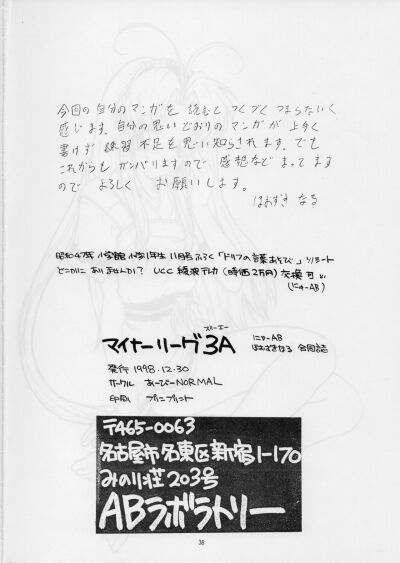 今回の自分のマンガを 読むと つくづく つまらないく
感じます。自分の思いどおりの マンガが 上手く
書けず 練習 不足を 思い知らされます。でも
これからも ガンバりますので 感想など まってます
ので よろしく お願いします。
ほおずき なる
昭和47年 小学館 小学1年生 11月号ふろく「ドリフの言葉あそび」ソノシート
どこかに ありませんか? UCC 綾波テレカ (時価2万円) 交換 可
(にゅーAB)
スリーエー
マイナーリーグ3A
にゅーAB
ほおずきなる 合同誌
発行 1998.12.30
サークル あーびーNORMAL
印刷 プリンプリント
〒465-0063
名古屋市名東区新宿1-170
みのり荘203号
ABラボラトリー
38